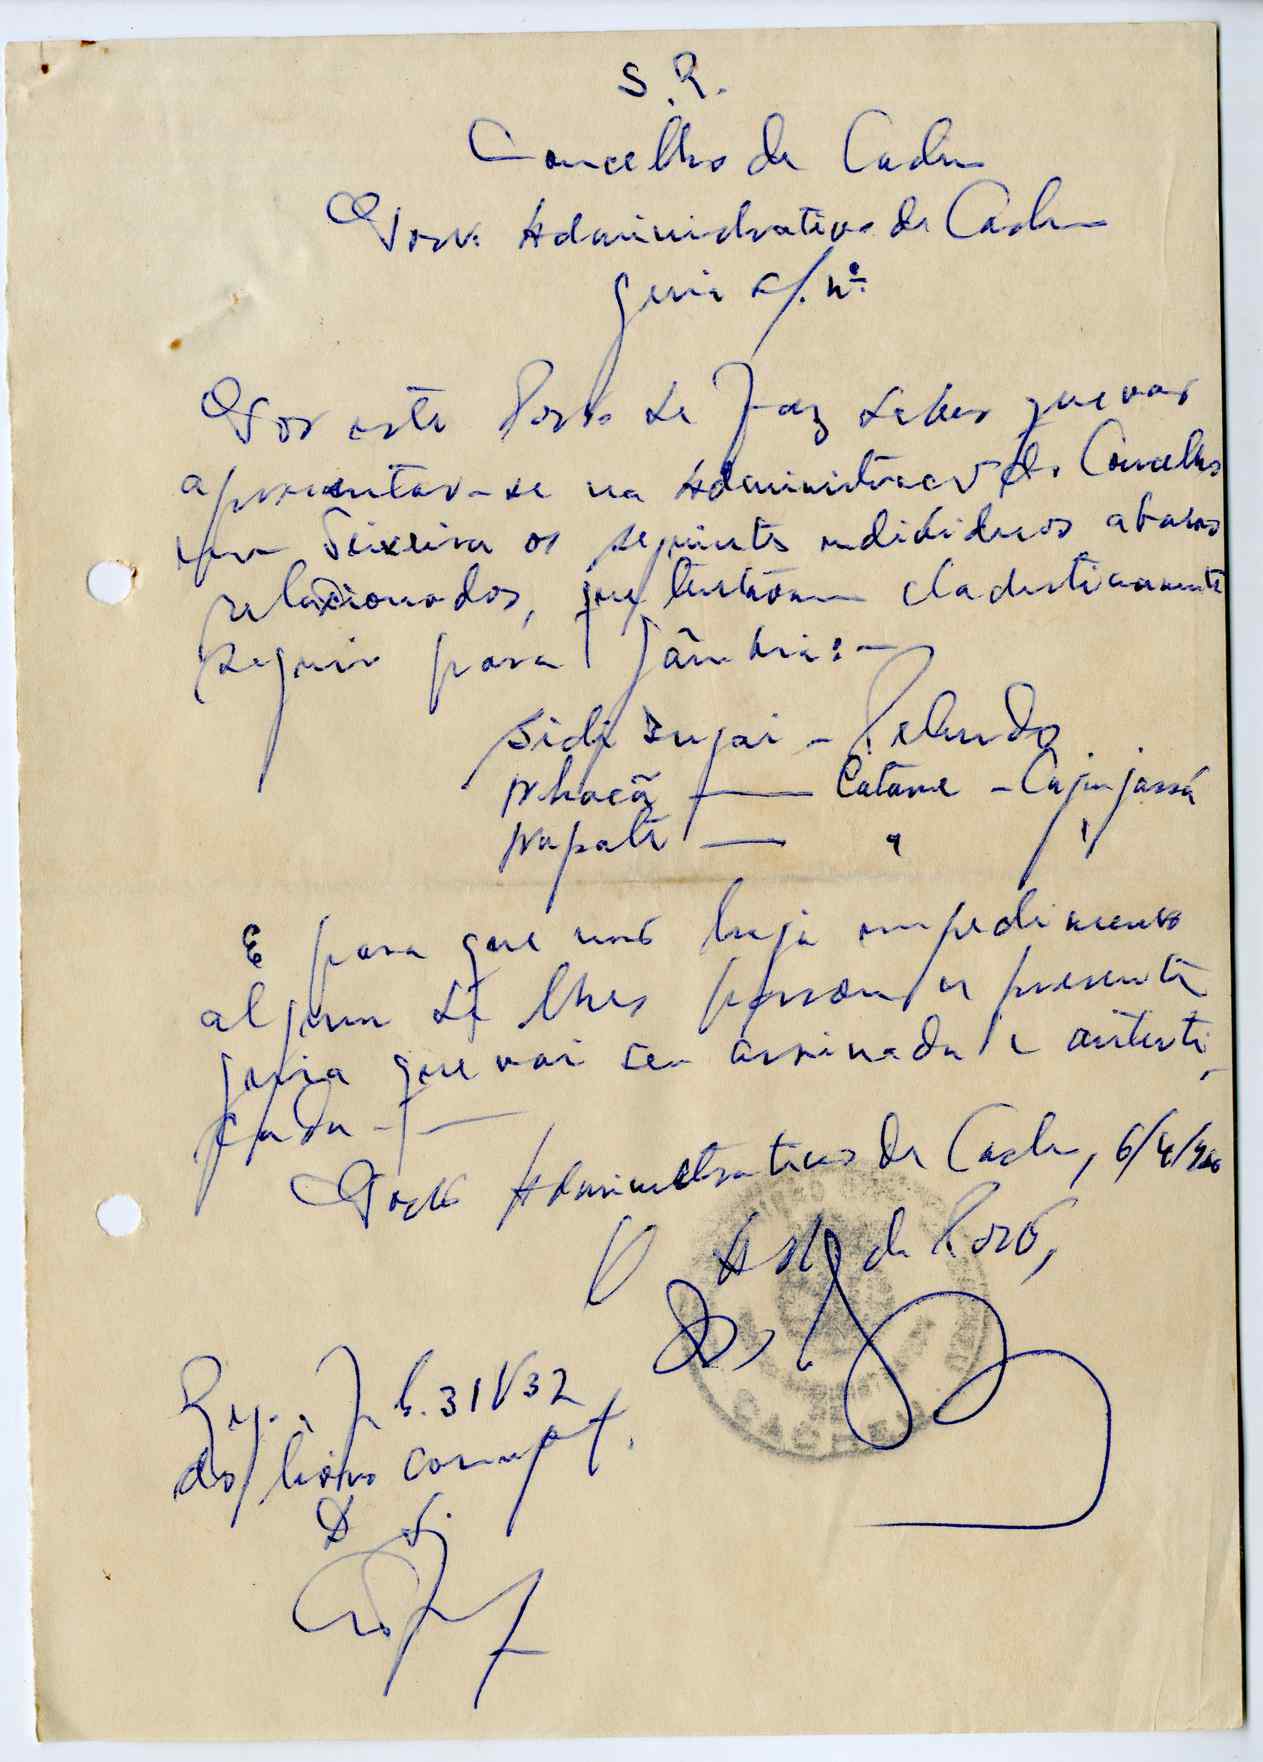 S. R.
Concelho de Cacheu
Posto Administrativo de Cacheu
Guia s/. nº
Por este Posto se faz saber que vão
apresentar-se na Administração do Concelho
em Teixeira os seguintes indibiduos abaixo
relaxionados, que tentaram cladestinamente
seguir para Gâmbia:-
Sidi - Pelundo
Nhacã — Catame - Cajinjassá
Napatê — " "
E para que não haja impedimento
algum se lhes passou a presente
guia que vai ser assinada e autenti-
cada
Posto Administrativo de Cacheu, 6/4/
O de Posto,
Reg. 31 V 32
do livro comp.
CACHEU